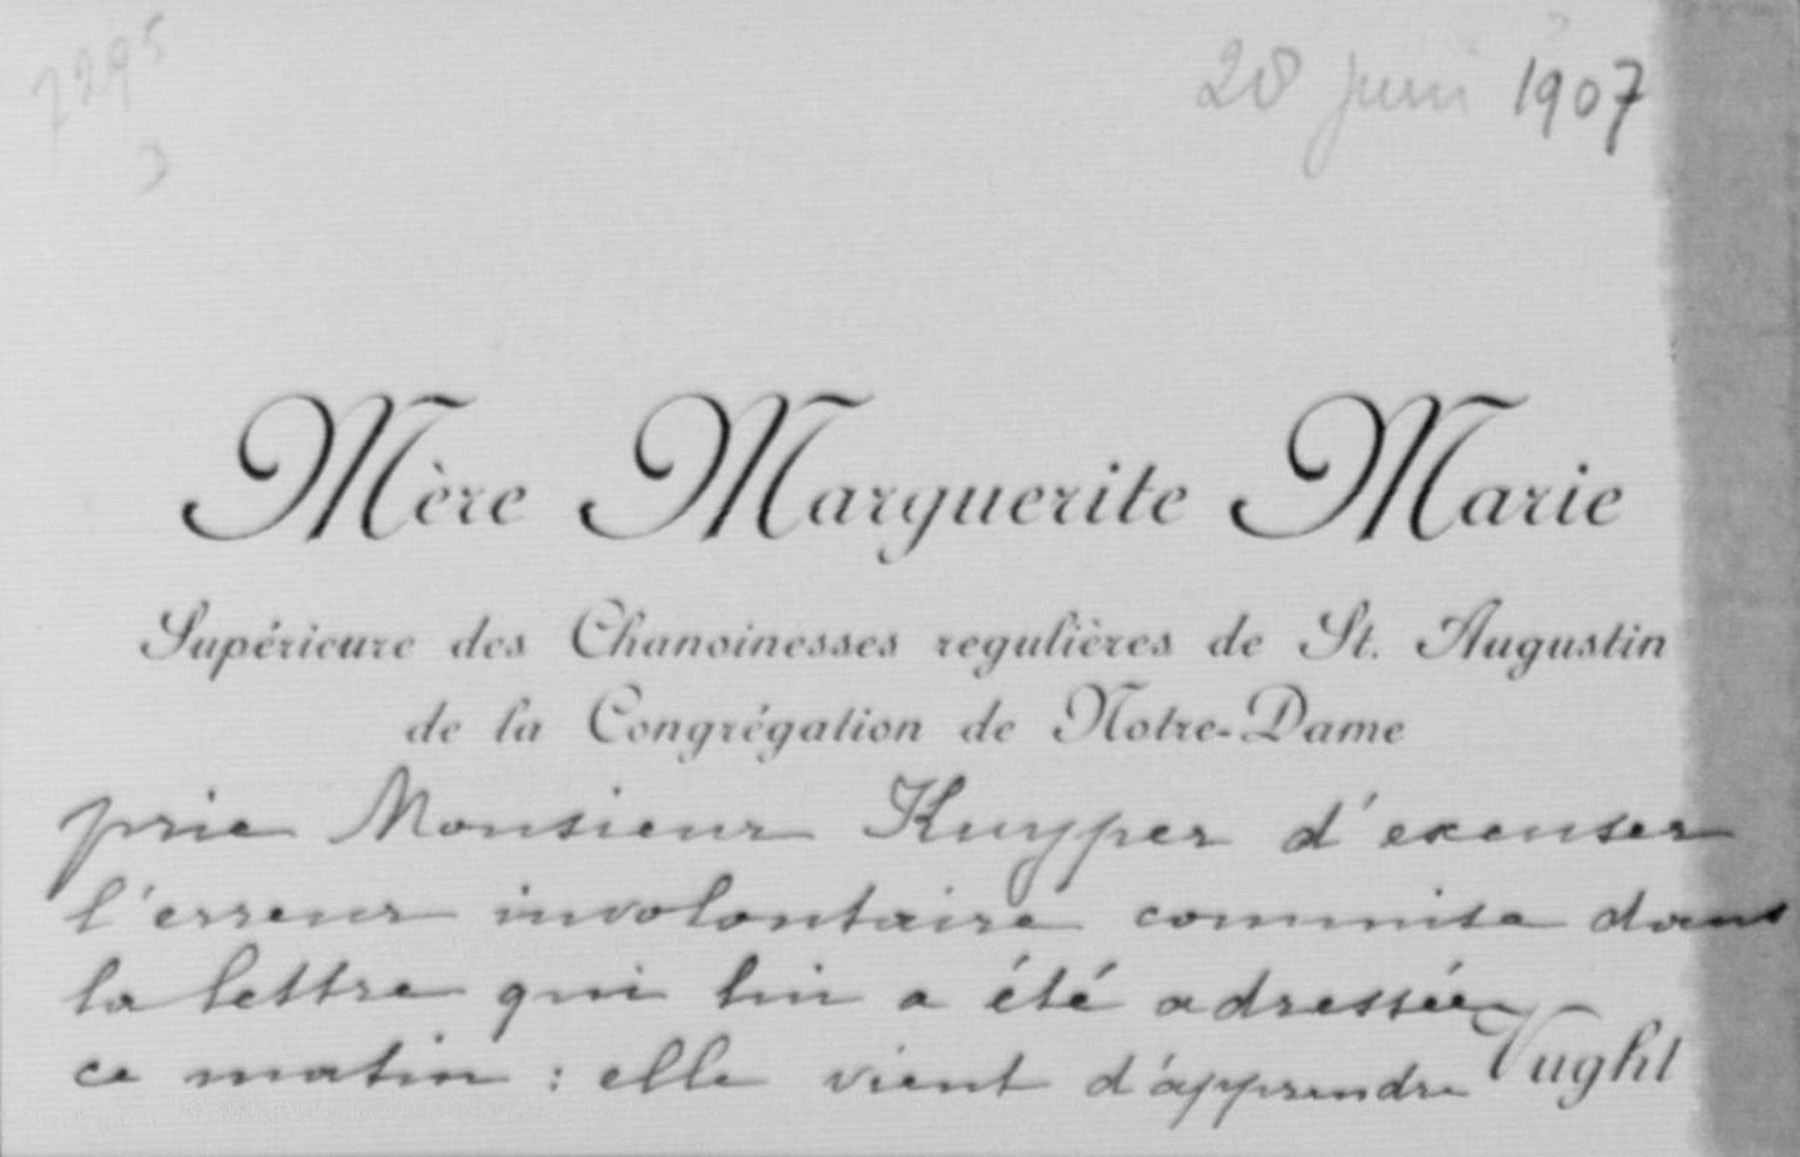 7295
20 juni 1907
Mère Marguerite Marie
Supérieure des Chanoinesses regulières de St. Augustin
de la Congrégation de Notre-Dame
prie Monsieur Kuyper d'excuser
l'erreur involontaire commise dans
la lettre qui lui a été adressée
ce matin : elle vient d'apprendre
Vught